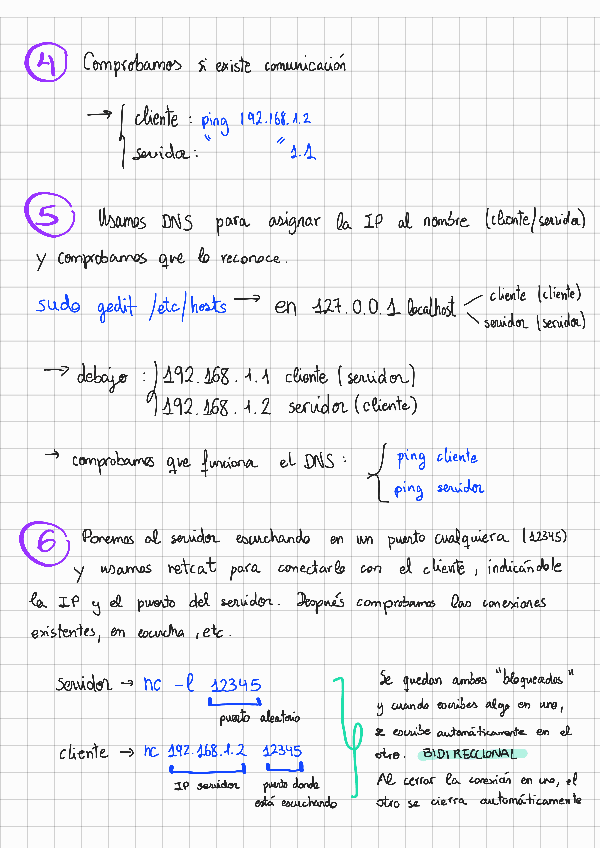 4 Comprobamos si existe comunicación
→ cliente : ping 192.168.1.2
servidor : " " 1.1
5 Usamos DNS para asignar la IP al nombre (cliente/servidor)
y comprobamos que lo reconoce.
sudo gedit /etc/hosts → en 127.0.0.1 localhost
cliente (cliente)
servidor (servidor)
→ debajo : 192.168.1.1 cliente (servidor)
192.168.1.2 servidor (cliente)
→ comprobamos que funciona el DNS :
ping cliente
ping servidor
6 Ponemos al servidor escuchando en un puerto cualquiera (12345)
y usamos netcat para conectarlo con el cliente, indicándole
la IP y el puerto del servidor. Después comprobamos las conexiones
existentes, en escucha, etc.
servidor → nc -l 12345
puerto aleatorio
cliente → nc 192.168.1.2 12345
IP servidor
puerto donde
está escuchando
Se quedan ambos "bloqueados"
y cuando escribes algo en uno,
se escribe automáticamente en el
otro. BIDIRECCIONAL
Al cerrar la conexión en uno, el
otro se cierra automáticamente